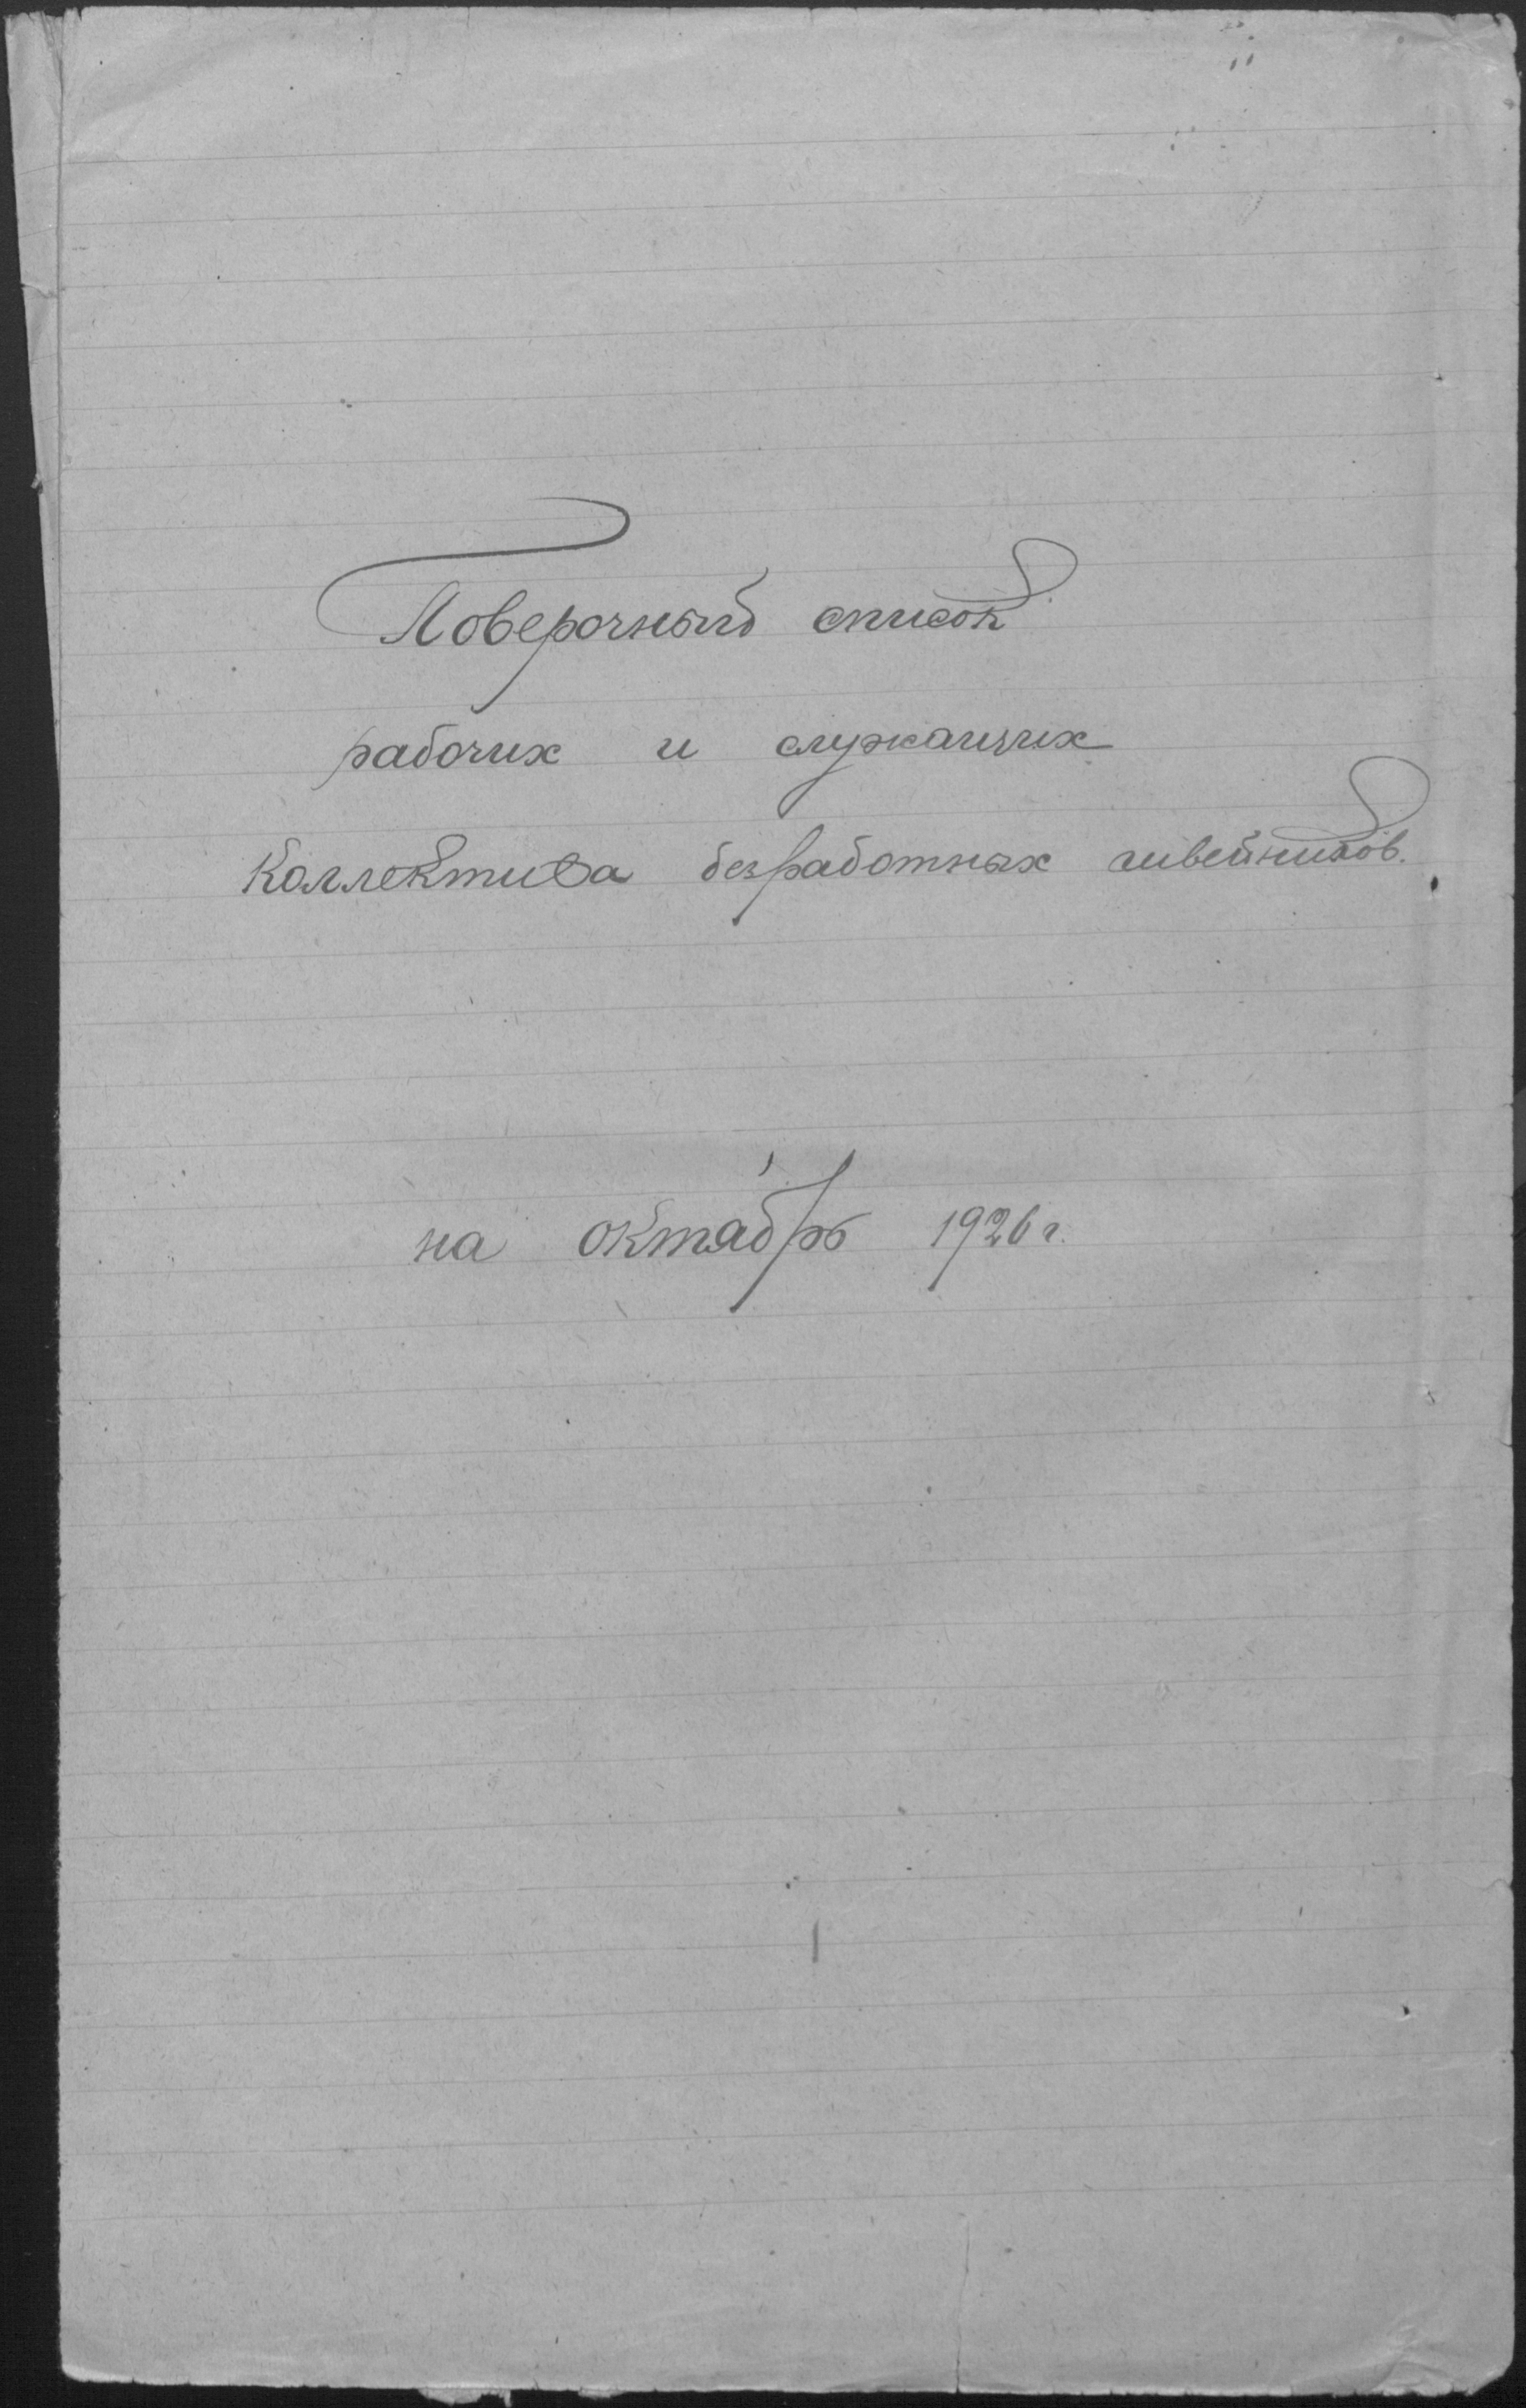 Поверочный список
рабочих и служащих
Коллектива безработных швейников.
на октябрь 1926 г.